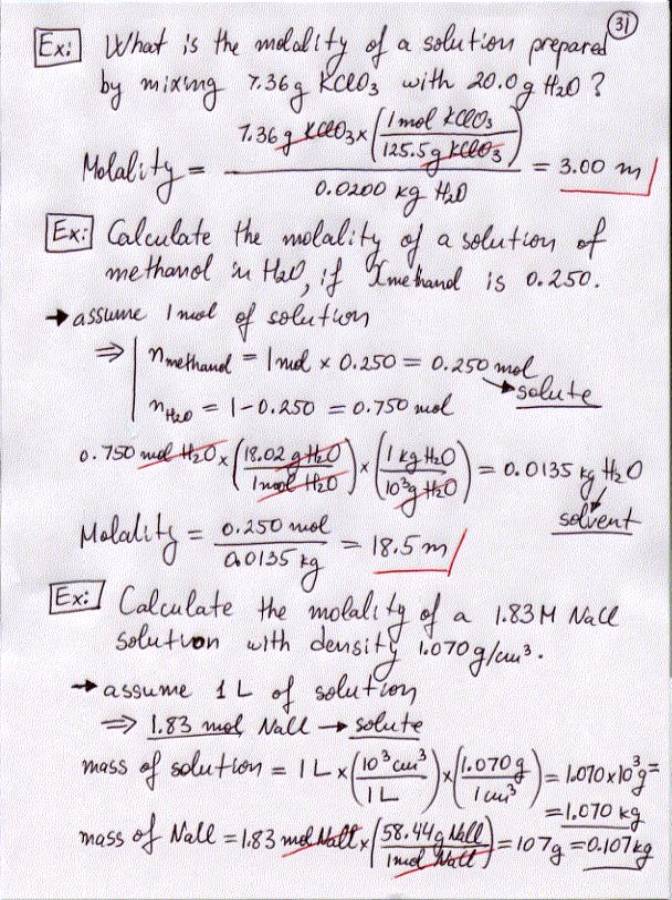 31
Ex: What is the molality of a solution prepared
by mixing 7.36g KClO₃ with 20.0g H₂O?
Molality = (7.36 g KClO₃ × (1 mol KClO₃ / 125.5g KClO₃)) / (0.0200 kg H₂O) = 3.00 m
Ex: Calculate the molality of a solution of
methanol in H₂O, if Xmethanol is 0.250.
→ assume 1 mol of solution
⇒ | nmethanol = 1 mol × 0.250 = 0.250 mol
→ solute
nH₂O = 1-0.250 = 0.750 mol
0.750 mol H₂O × (18.02 g H₂O / 1 mol H₂O) × (1 kg H₂O / 10³g H₂O) = 0.0135 kg H₂O
solvent
Molality = 0.250 mol / 0.0135 kg = 18.5 m
Ex: Calculate the molality of a 1.83M NaCl
solution with density 1.070 g/cm³.
→ assume 1 L of solution
⇒ 1.83 mol NaCl → solute
mass of solution = 1 L × (10³ cm³ / 1 L) × (1.070 g / 1 cm³) = 1.070×10³g =
= 1.070 kg
mass of NaCl = 1.83 mol NaCl × (58.44g NaCl / 1 mol NaCl) = 107g = 0.107kg